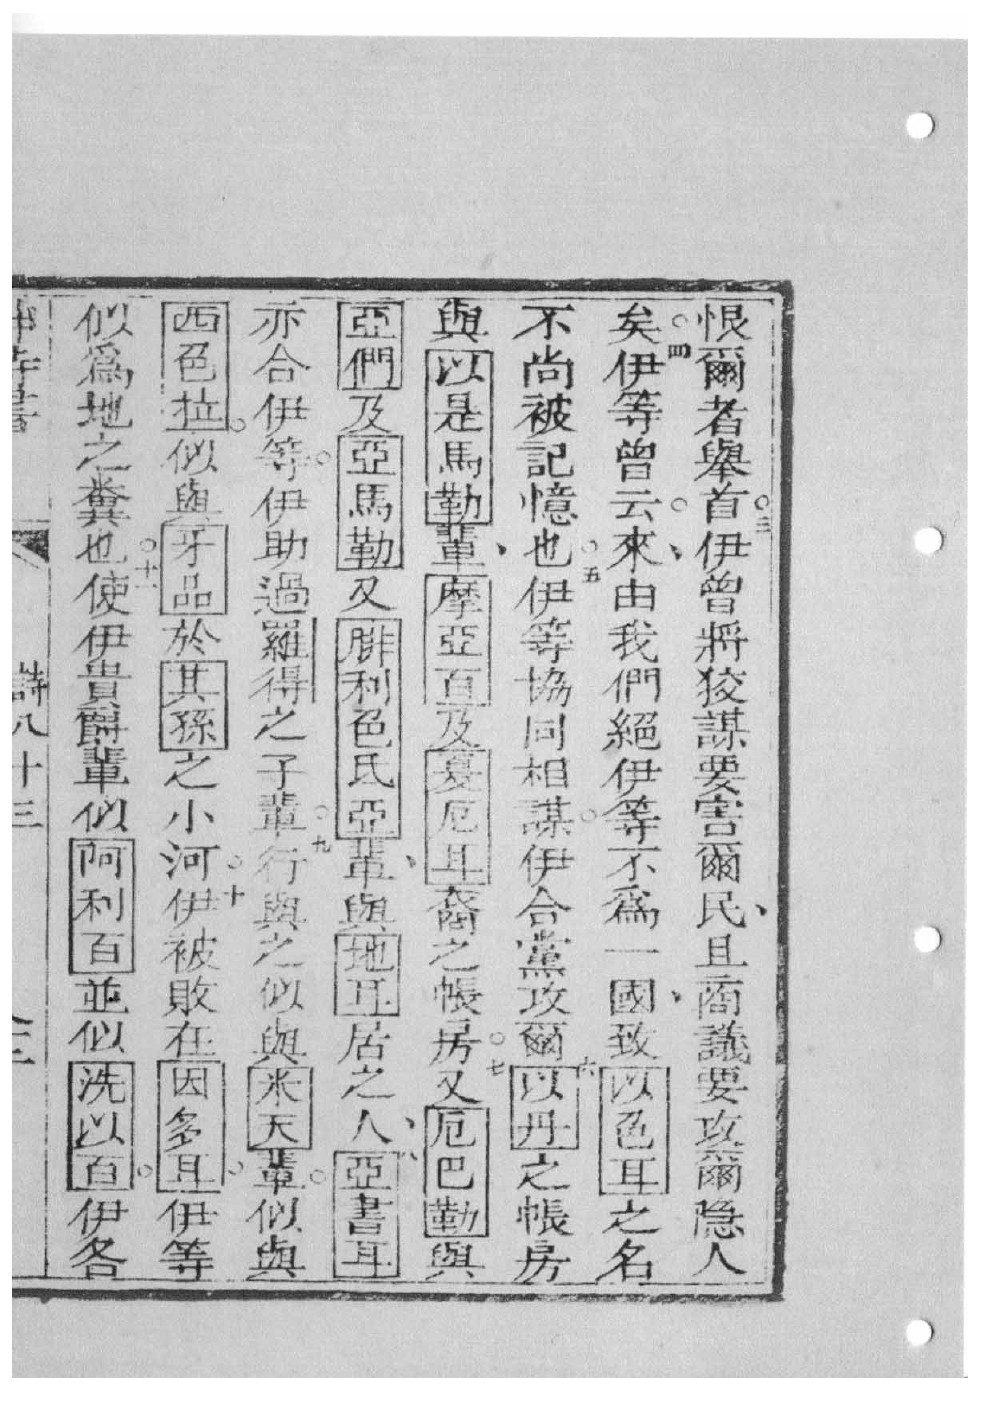 恨爾者舉首○三伊曾將狡謀要害爾民、且商議要攻爾隐人
矣○四伊等曾云○來、由我們絕伊等不為一國、致以色耳之名
不尚被記憶也○五伊等協同相謀○伊合黨攻爾○六以丹之帳房
與以是馬勒輩、摩亞百及憂厄耳裔之帳房○七又厄巴勒與
亞們及亞馬勒又腓利色氏亞輩、與地耳居之人、八亞書耳
亦合伊等○伊助過羅得之子輩○九行與之似與米天輩○似與
西色拉○似與牙品於其孫之小河○十伊被敗在因多耳○伊等
似為地之糞也○十一使伊貴爵輩似阿利百並似洗以百○伊各
詩八十三